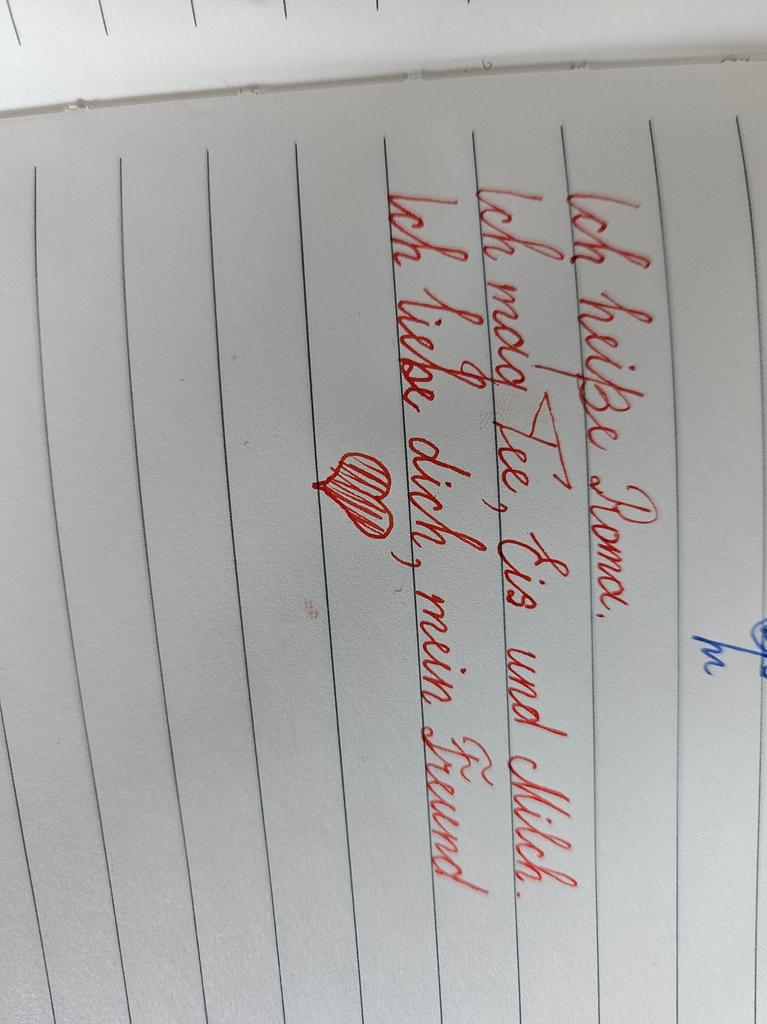 Ich heiße Roma.
Ich mag Tee, Eis und Milch.
Ich liebe dich, mein Freund